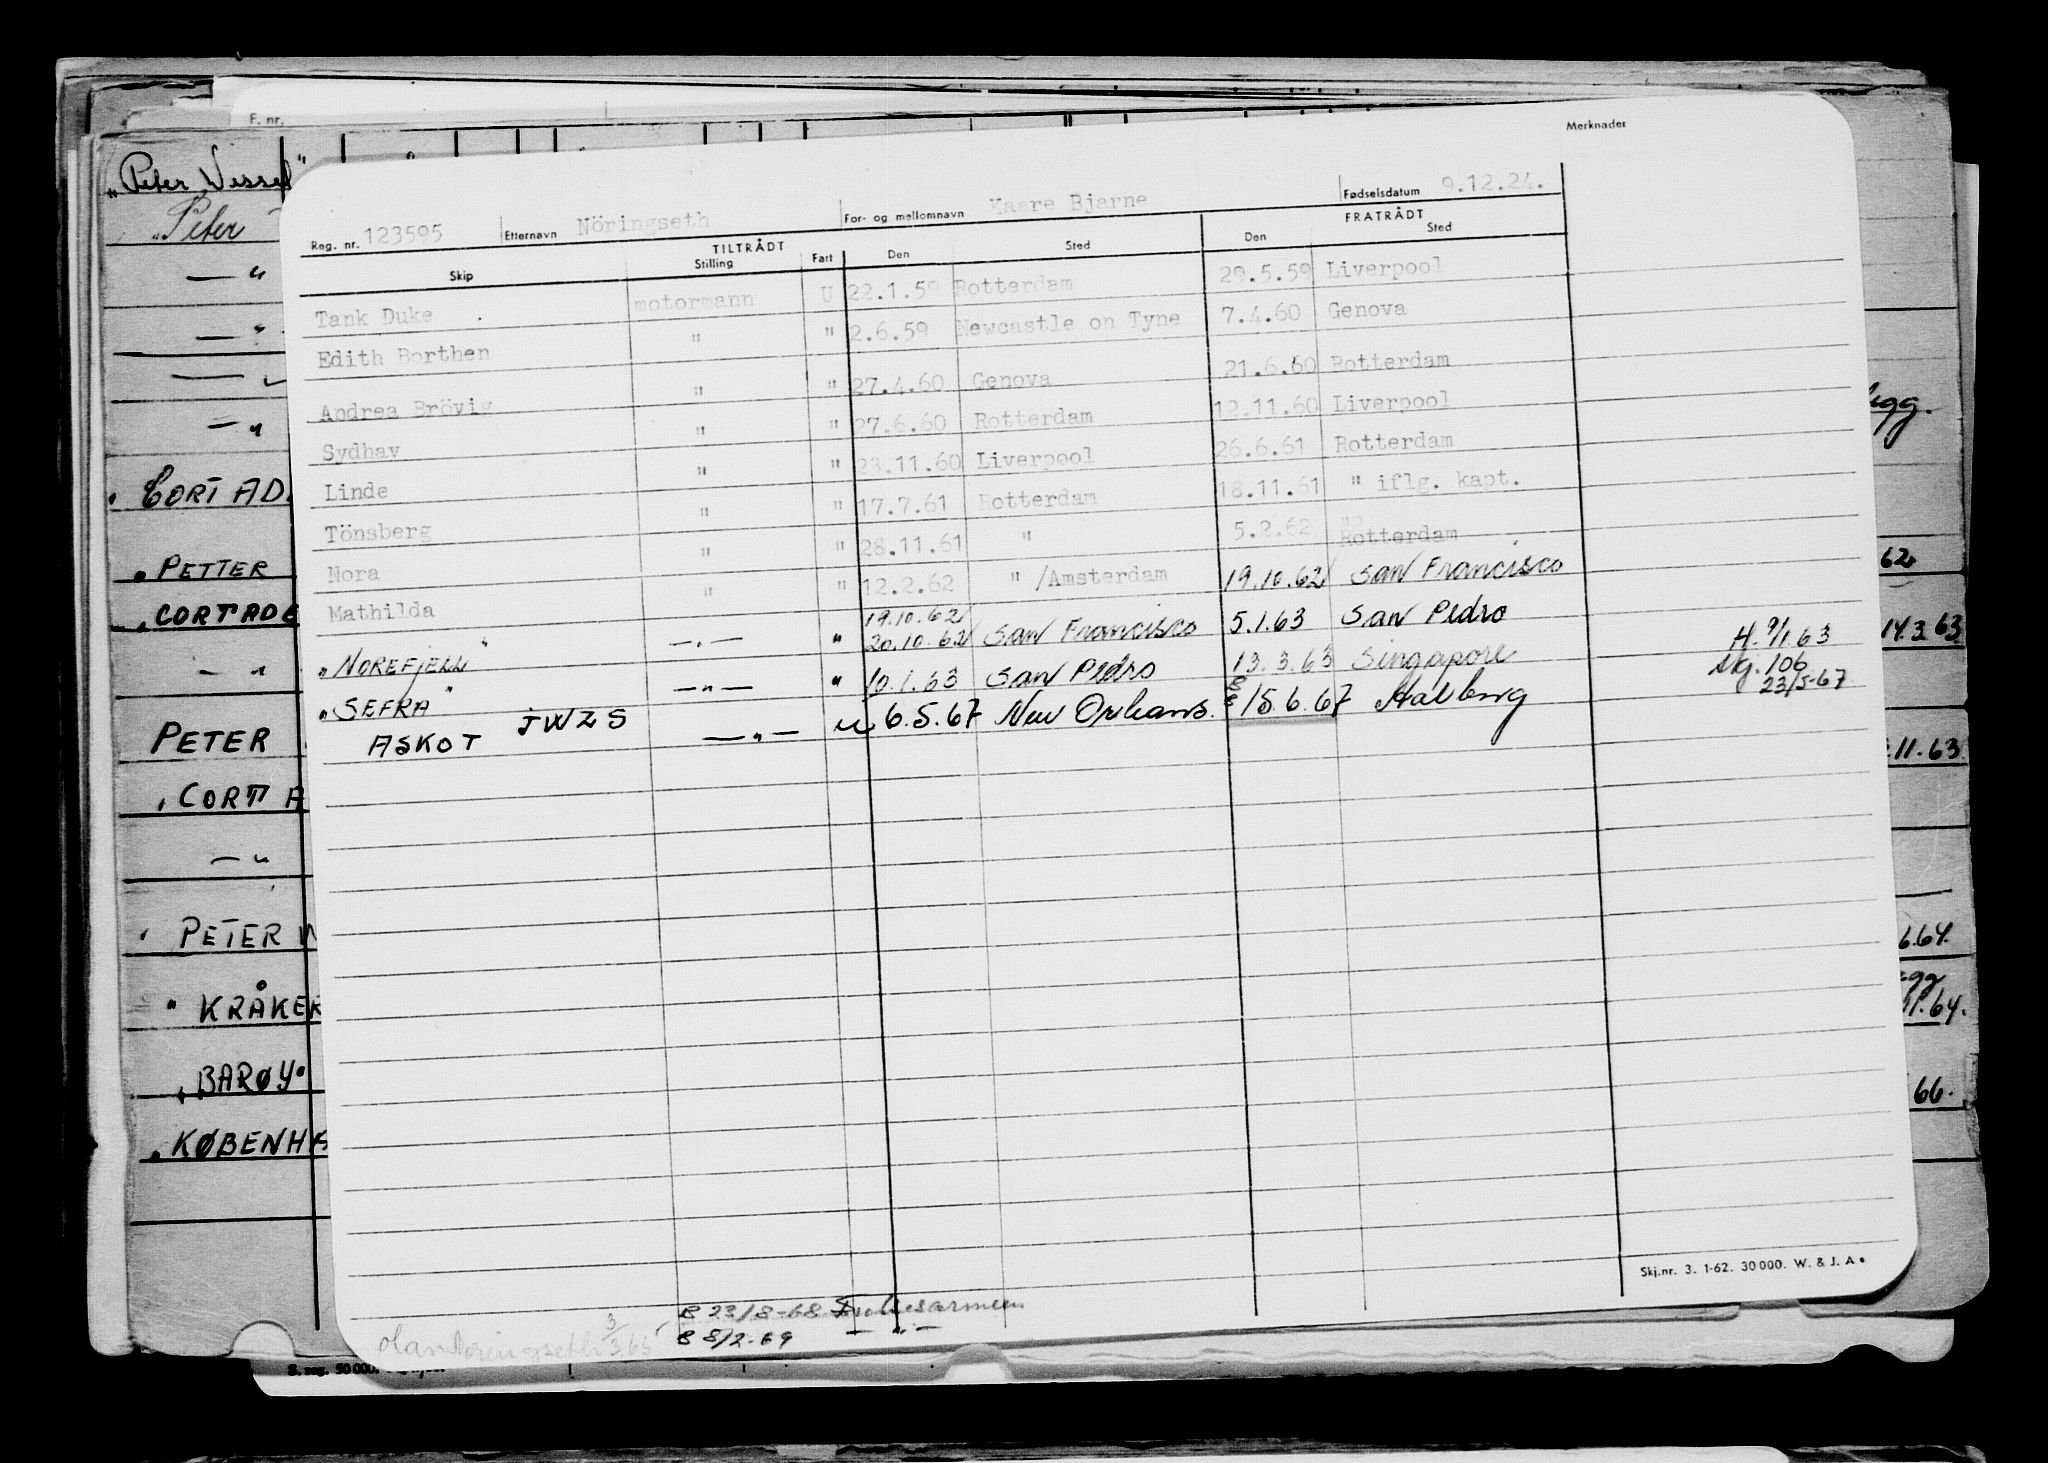 F. nr.
Merknader
"Peter Wessel"
"Peter
Reg. nr. 123595 Etternavn Nöringseth For- og mellomnavn Kaare Bjarne Fødselsdatum 9.12.24.
TILTRÅDT FRATRÅDT
Skip Stilling Fart Den Sted Den Sted
Tank Duke motormann U 22.1.59 Rotterdam 29.5.59 Liverpool
Edith Borthen " " 2.6.59 Newcastle on Tyne 7.4.60 Genova
Andrea Brövig " " 27.4.60 Genova 21.6.60 Rotterdam
Sydhav " " 27.6.60 Rotterdam 12.11.60 Liverpool
Linde " " 23.11.60 Liverpool 26.6.61 Rotterdam
Tönsberg " " 17.7.61 Rotterdam 18.11.61 " iflg. kapt.
Nora " " 28.11.61 " 5.2.62 Rotterdam
Mathilda " " 12.2.62 " /Amsterdam 19.10.62 San Francisco
19.10.62
"NOREFJELL" —"— " 20.10.62 San Francisco 5.1.63 San Pedro
H. 9/1.63
"SEFRA" —"— " 10.1.63 San Pedro 13.3.63 Singapore
106
23/5-67
ASKOT JWZS —"— u 6.5.67 New Orleans. 15.6.67 Aalborg
egg.
CORT AD
PETTER
62
CORT ADE
14.3.63
PETER
.11.63
CORT A
PETER W
6.64.
KRÅKER
11.64.
"BARØY"
66.
KØBENHA
Skj.nr. 3. 1-62. 30 000. W. & J. A.
B 23/8-68 Frelsesarmeen
B 8/2-69 —"—
Nöringseth 3/3.65
S. reg. 50 000.